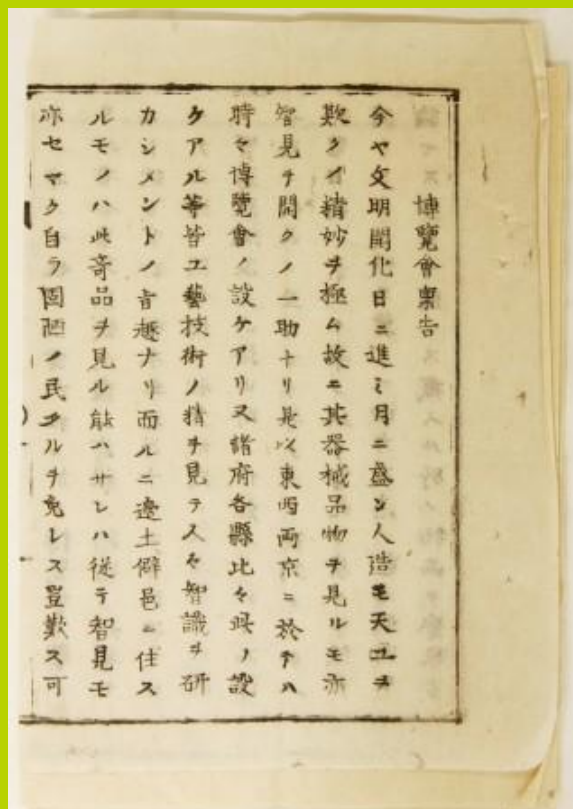 博覽會稟告
今ヤ文明開化日ニ進ミ月ニ盛ン人造モ天工ヲ
欺クノ精妙ヲ極ム故ニ其器械品物ヲ見ルモ亦
智見ヲ開クノ一助ナリ是以東西両京ニ於テハ
時々博覽會ノ設ケアリ又諸府各縣比々此ノ設
ケアル等皆工藝技術ノ精ヲ見テ人々智識ヲ研
カシメントノ旨趣ナリ而ルニ邊土僻邑ニ住ス
ルモノハ此奇品ヲ見ル能ハサレハ従テ智見モ
亦セマク自ラ固陋ノ民タルヲ免レス豈歎ス可